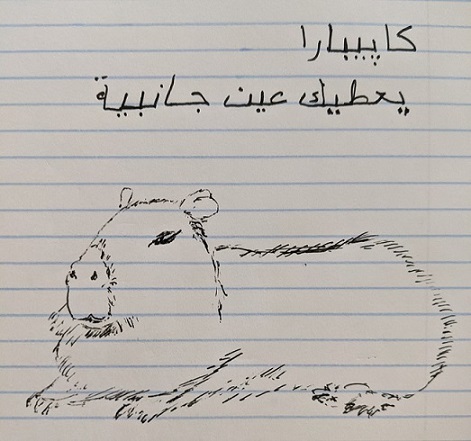 كاپيبارا
يعطيك عين جانبية